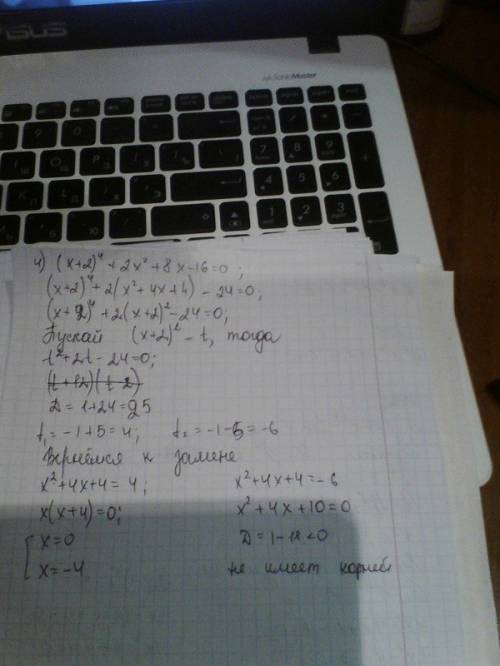 SUS
SonicMaster
4) (x+2)⁴ + 2x² + 8x - 16 = 0;
(x+2)⁴ + 2(x² + 4x + 4) - 24 = 0;
(x+2)⁴ + 2(x+2)² - 24 = 0;
Пускай (x+2)² - t, тогда
t² + 2t - 24 = 0;
(t+12)(t-2)
D = 1 + 24 = 25
t₁ = -1 + 5 = 4; t₂ = -1 - 5 = -6
Вернёмся к замене
x² + 4x + 4 = 4; x² + 4x + 4 = -6
x(x+4) = 0; x² + 4x + 10 = 0
x = 0
x = -4 не имеет корней